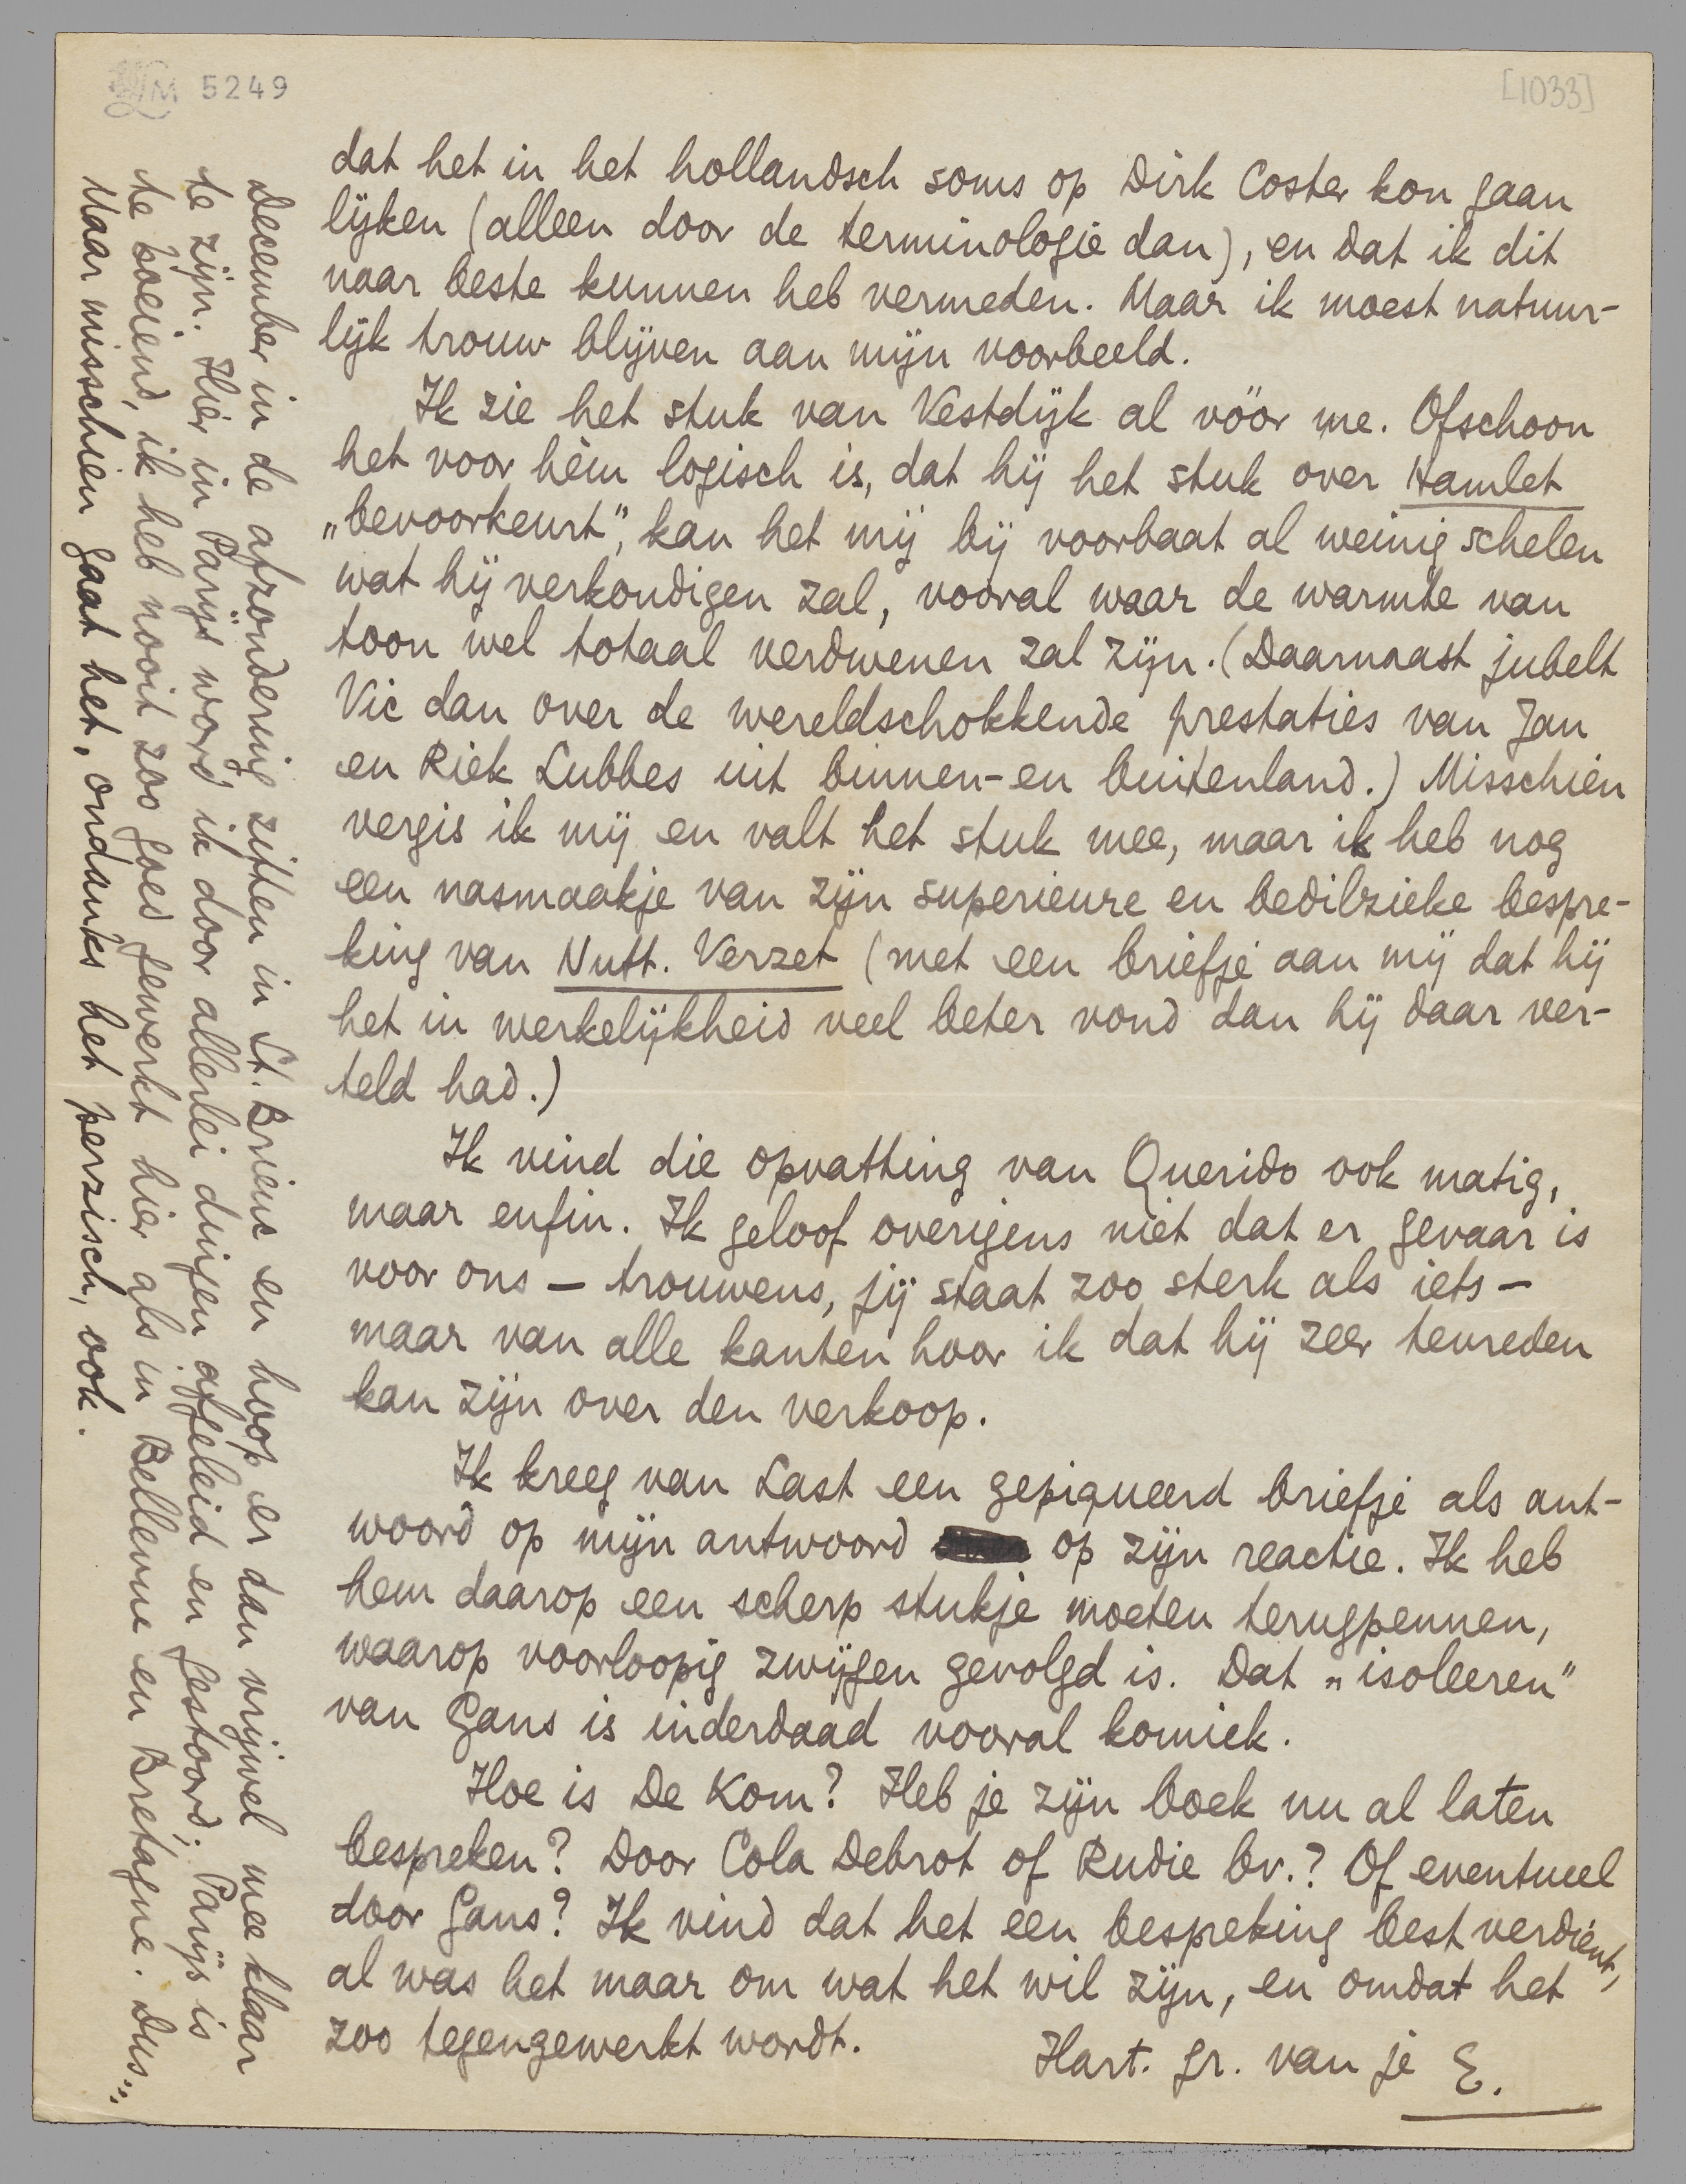 LM 5249
[1033]
dat het in het hollandsch soms op Dirk Coster kon gaan
lijken (alleen door de terminologie dan), en dat ik dit
naar beste kunnen heb vermeden. Maar ik moest natuur-
lijk trouw blijven aan mijn voorbeeld.
Ik zie het stuk van Vestdijk al vóór me. Ofschoon
het voor hèm logisch is, dat hij het stuk over Hamlet
„bevoorkeurt”, kan het mij bij voorbaat al weinig schelen
wat hij verkondigen zal, vooral waar de warmte van
toon wel totaal verdwenen zal zijn. (Daarnaast jubelt
Vic dan over de wereldschokkende prestaties van Jan
en Riek Lubbes uit binnen- en buitenland.) Misschien
vergis ik mij en valt het stuk mee, maar ik heb nog
een nasmaakje van zijn superieure en bedilzieke bespre-
king van Nutt. Verzet (met een briefje aan mij dat hij
het in werkelijkheid veel beter vond dan hij daar ver-
teld had.)
Ik vind die opvatting van Querido ook matig,
maar enfin. Ik geloof overigens niet dat er gevaar is
voor ons – trouwens, jij staat zoo sterk als iets –
maar van alle kanten hoor ik dat hij zeer tevreden
kan zijn over den verkoop.
Ik kreeg van Last een gepiqueerd briefje als ant-
woord op mijn antwoord op zijn reactie. Ik heb
hem daarop een scherp stukje moeten terugpennen,
waarop voorloopig zwijgen gevolgd is. Dat „isoleeren”
van Gans is inderdaad vooral komiek.
Hoe is De Kom? Heb je zijn boek nu al laten
bespreken? Door Cola Debrot of Rudie bv.? Of eventueel
door Gans? Ik vind dat het een bespreking best verdient,
al was het maar om wat het wil zijn, en omdat het
zoo tegengewerkt wordt.
Hart. gr. van je E.
December in de afzondering zitten in St. Brieuc en hoop er dan vrijwel mee klaar
te zijn. Hier in Parijs word ik door allerlei dingen afgeleid en gestoord; Parijs is
te boeiend, ik heb nooit zoo goed gewerkt hier als in Bellevue en Brétagne. Dus...
Maar misschien gaat het, ondanks het perzisch, ook.